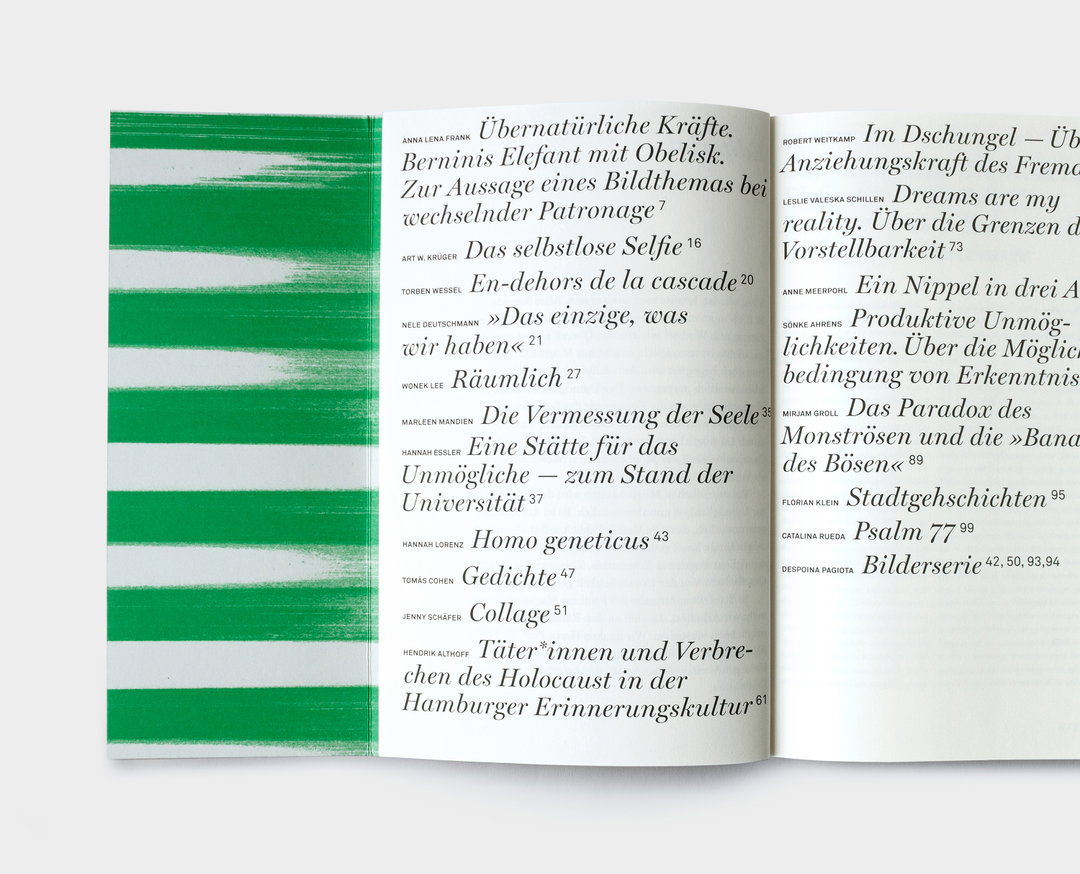 ANNA LENA FRANK Übernatürliche Kräfte.
Berninis Elefant mit Obelisk.
Zur Aussage eines Bildthemas bei
wechselnder Patronage 7
ART W. KRÜGER Das selbstlose Selfie 16
TORBEN WESSEL En-dehors de la cascade 20
NELE DEUTSCHMANN »Das einzige, was
wir haben« 21
WONEK LEE Räumlich 27
MARLEEN MANDIEN Die Vermessung der Seele 35
HANNAH ESSLER Eine Stätte für das
Unmögliche — zum Stand der
Universität 37
HANNAH LORENZ Homo geneticus 43
TOMÁS COHEN Gedichte 47
JENNY SCHÄFER Collage 51
HENDRIK ALTHOFF Täter*innen und Verbre-
chen des Holocaust in der
Hamburger Erinnerungskultur 61
ROBERT WEITKAMP Im Dschungel — Üb
Anziehungskraft des Fremd
LESLIE VALESKA SCHILLEN Dreams are my
reality. Über die Grenzen d
Vorstellbarkeit 73
ANNE MEERPOHL Ein Nippel in drei A
SÖNKE AHRENS Produktive Unmög-
lichkeiten. Über die Möglich
bedingung von Erkenntnis
MIRJAM GROLL Das Paradox des
Monströsen und die »Bana
des Bösen« 89
FLORIAN KLEIN Stadtgehschichten 95
CATALINA RUEDA Psalm 77 99
DESPOINA PAGIOTA Bilderserie 42, 50, 93,94